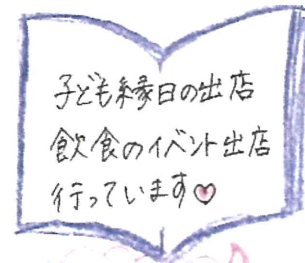 子ども縁日の出店
飲食のイベント出店
行っています♡